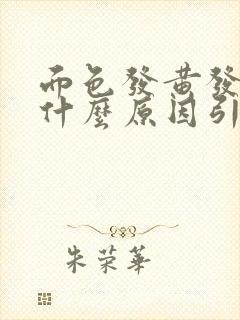 面色發黃發
什麼原因引
朱荣華